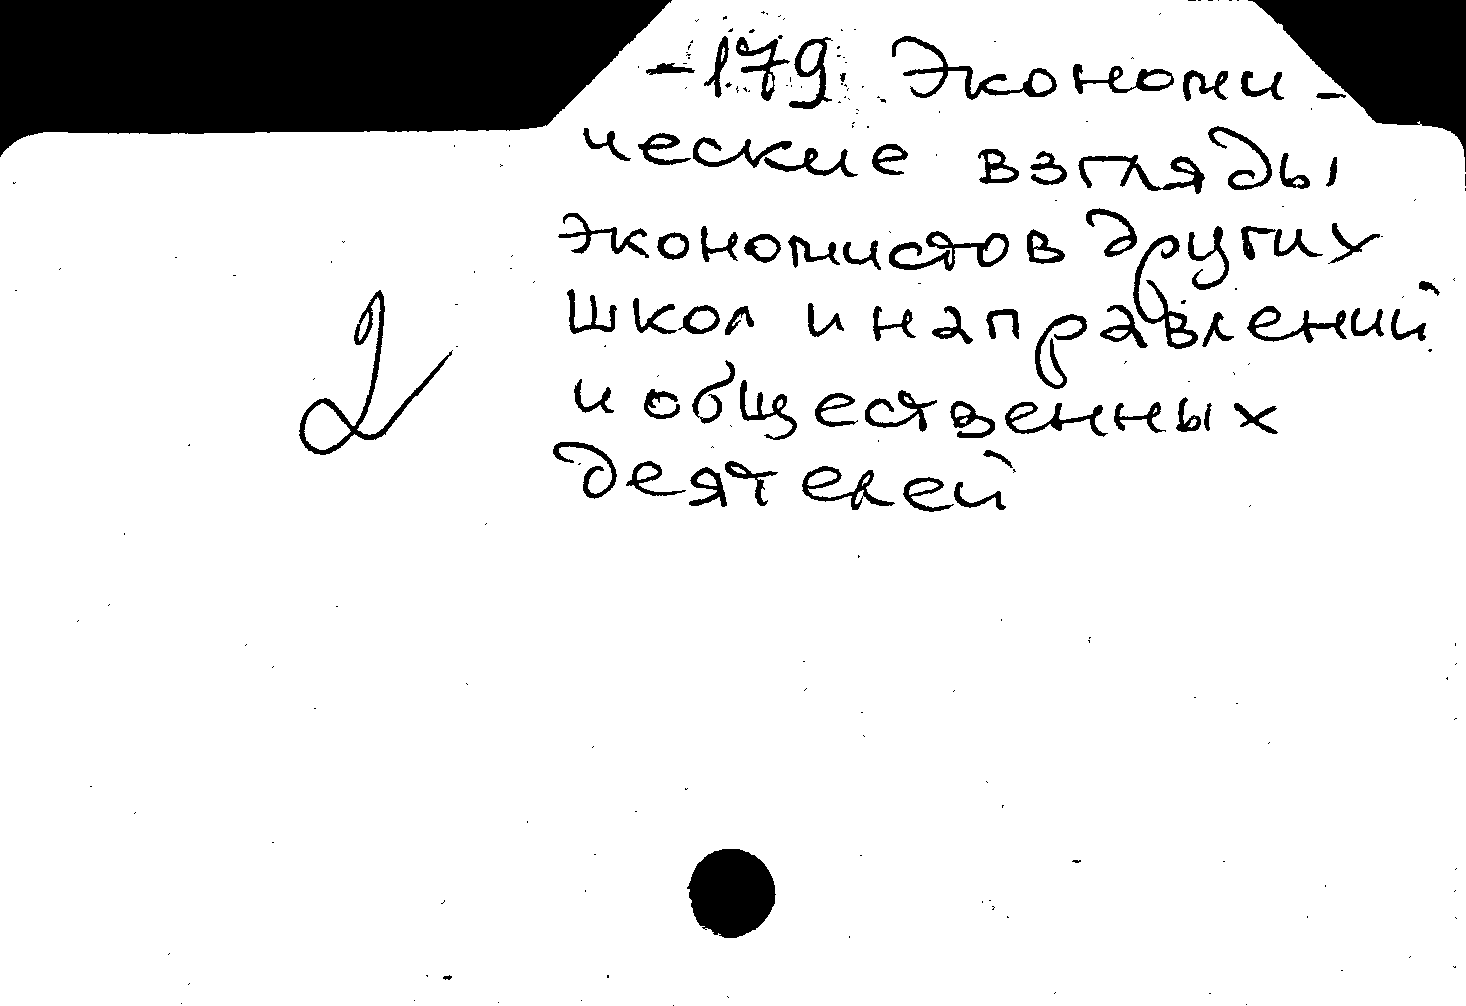 -179 Экономи-
ческие взгляды
экономистов других
школ и направлений
2
и общественных
деятелей